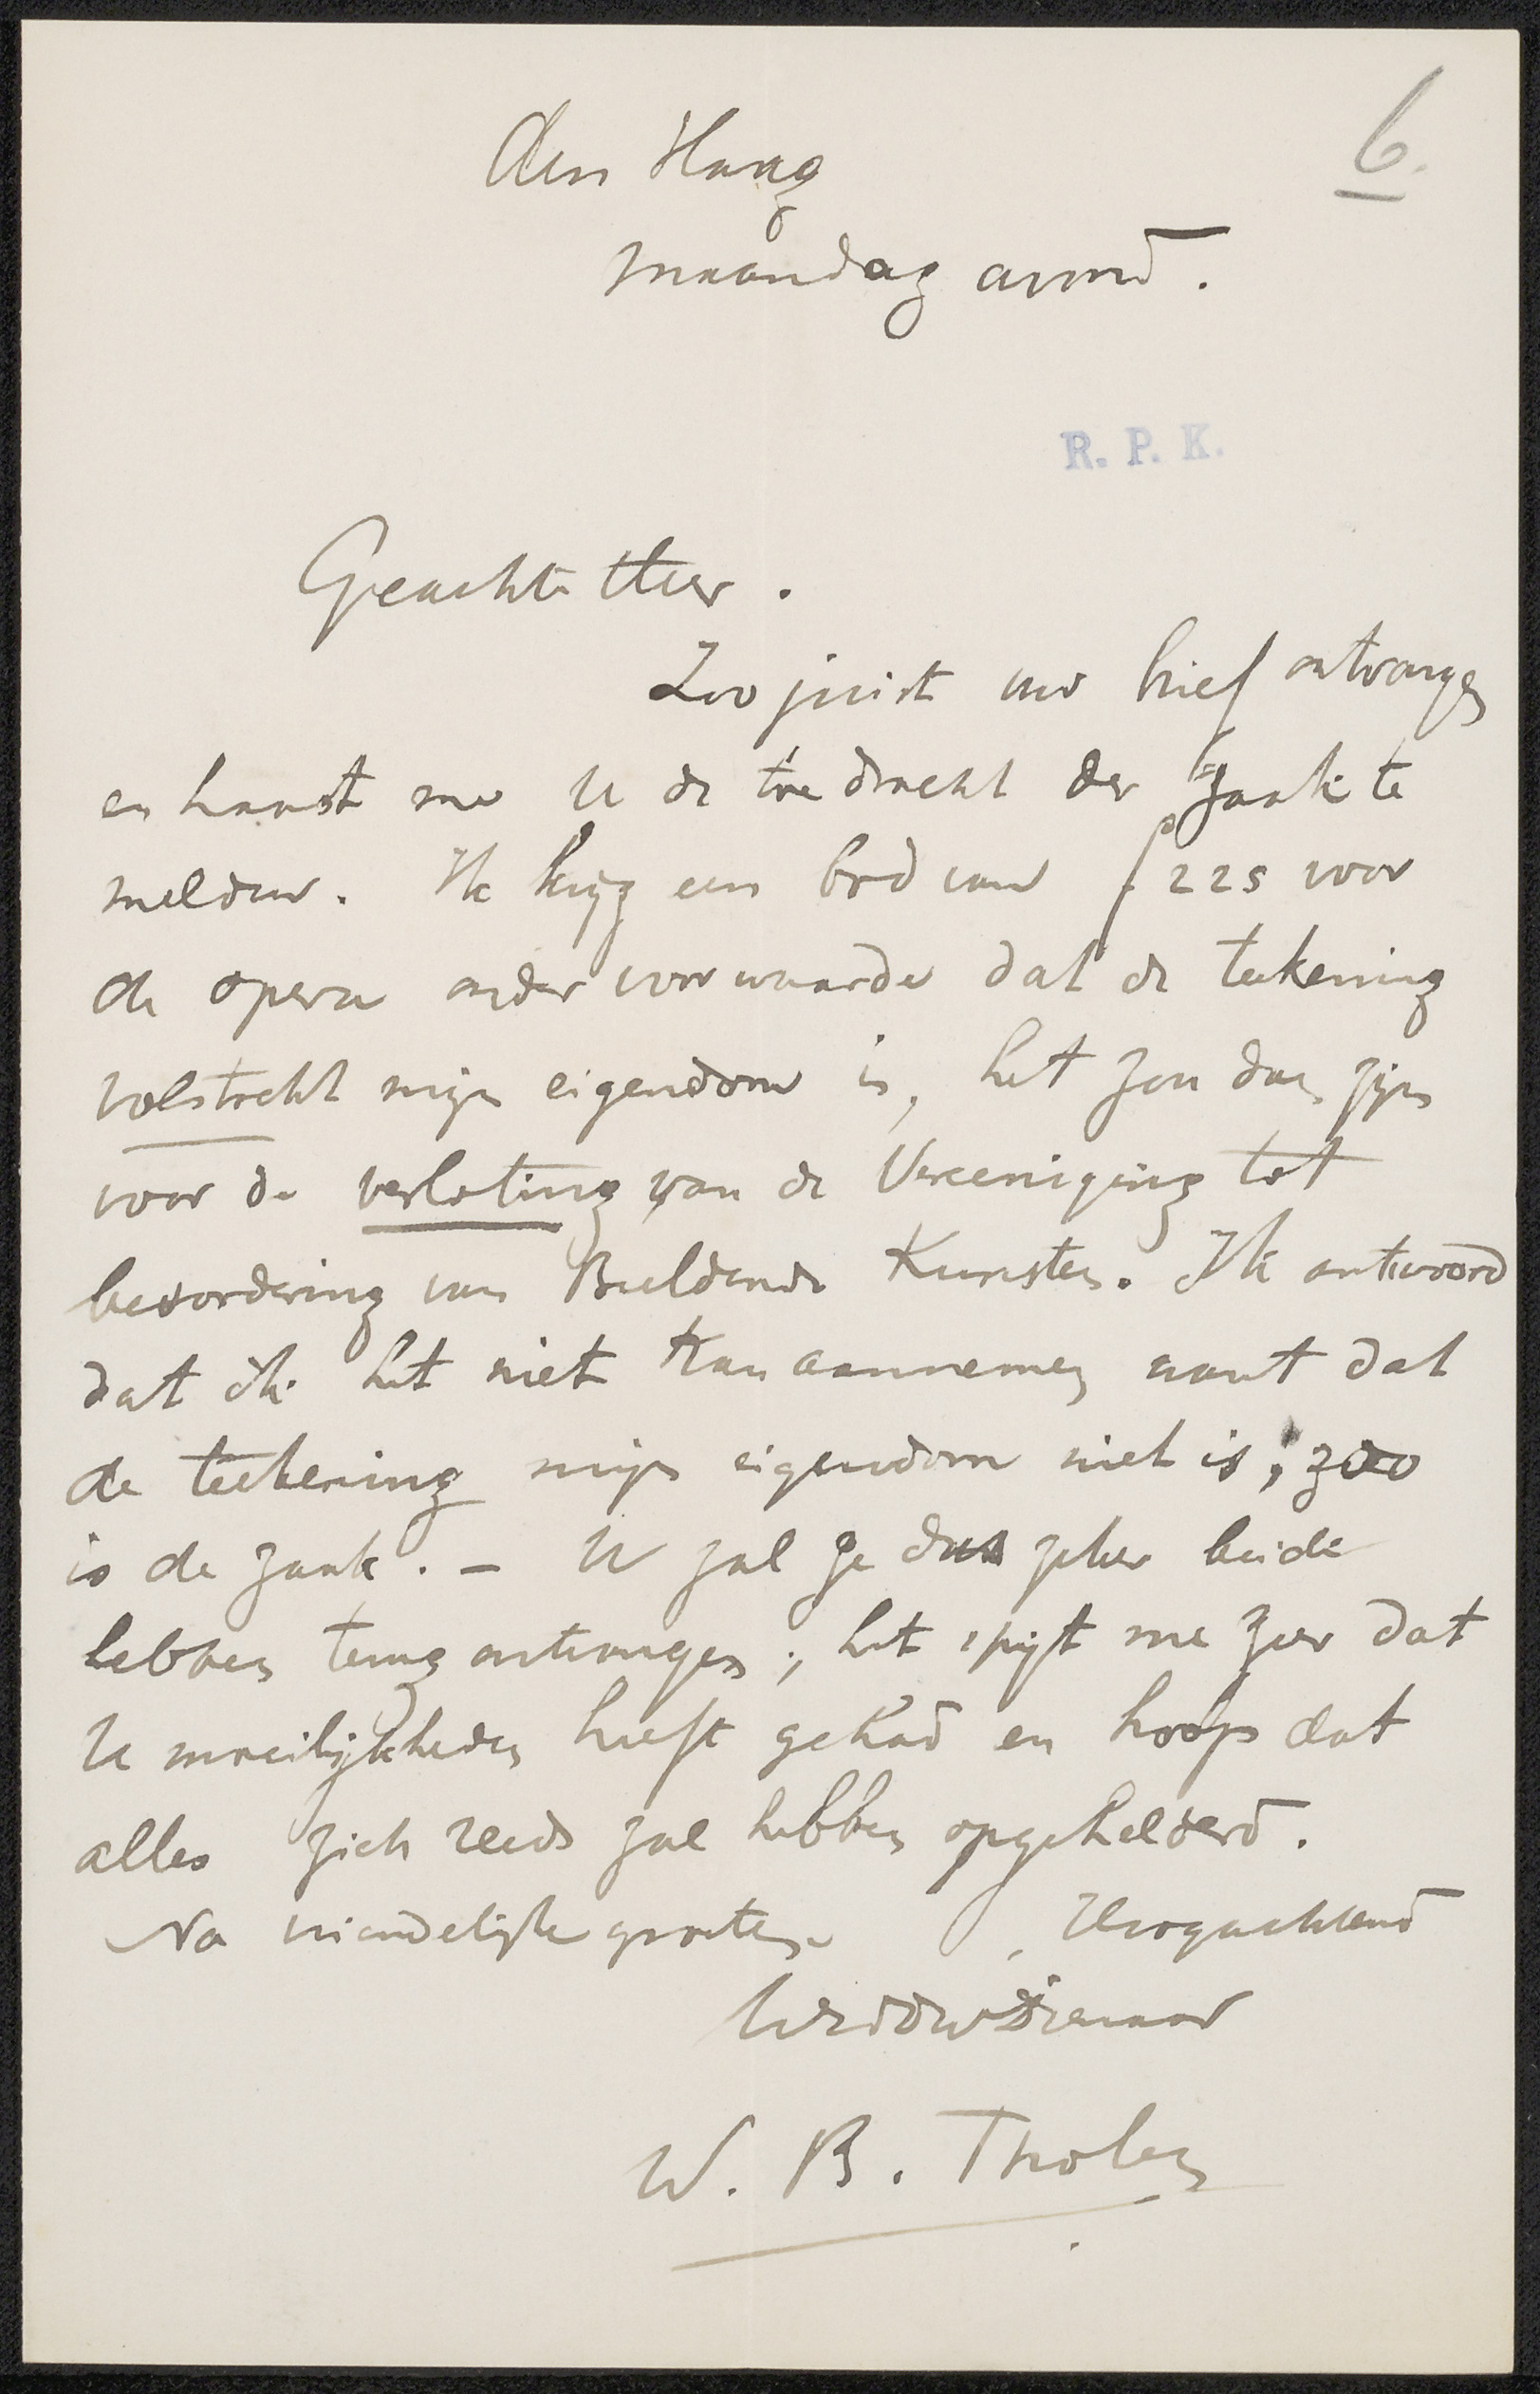 6.
den Haag
maandag avond.
R. P. K.
Geachte Heer.
Zoo juist uw brief ontvangen
en haast me U de toedracht der zaak te
melden. Ik krijg een bod van f 225 voor
de opera onder voorwaarde dat de teekening
volstrekt mijn eigendom is, het zou dan zijn
voor de verloting van de Vereeniging tot
bevordering van Beeldende Kunsten. Ik antwoord
dat ik het niet kan aannemen want dat
de teekening mijn eigendom niet is; zoo
is de zaak. – U zal ze dus zeker beide
hebben terug ontvangen; het spijt me zeer dat
U moeilijkheden heeft gehad en hoop dat
alles zich reeds zal hebben opgehelderd.
Na vriendelijke groeten. Hoogachtend
Uw dw dienaar
W. B. Tholen